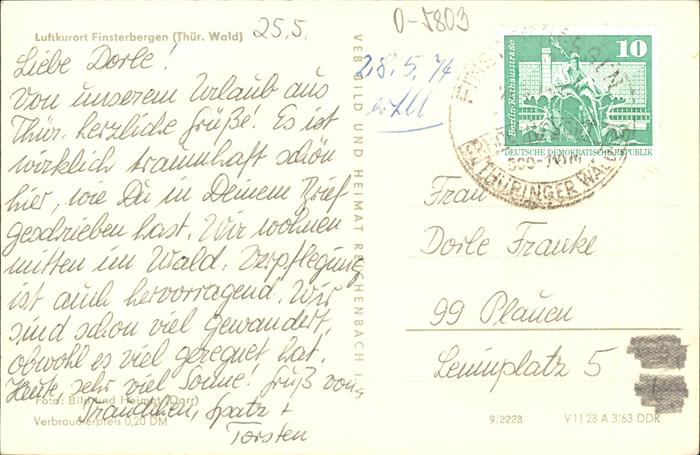 Luftkurort Finsterbergen (Thür. Wald)
25.5.
Liebe Dorle!
Von unserem Urlaub aus
Thür. herzliche Grüße! Es ist
wirklich traumhaft schön
hier, wie Du in Deinem Brief
geschrieben hast. Wir wohnen
mitten im Wald. Verpflegung
ist auch hervorragend. Wir
sind schon viel gewandert,
obwohl es viel geregnet hat.
Heute sehr viel Sonne! Gruß von
Spatz +
Torsten
Foto: Bild und Heimat (Darr)
Verbraucherpreis 0,20 DM
VEB BILD UND HEIMAT REICHENBACH I. V.
0-5803
28.5.74
10
Berlin-Rathausstraße
DEUTSCHE DEMOKRATISCHE REPUBLIK
THÜRINGER WALD
Frau
Dorle Franke
99 Plauen
Leninplatz 5
9/2228
V 11 28 A 3/63 DDR